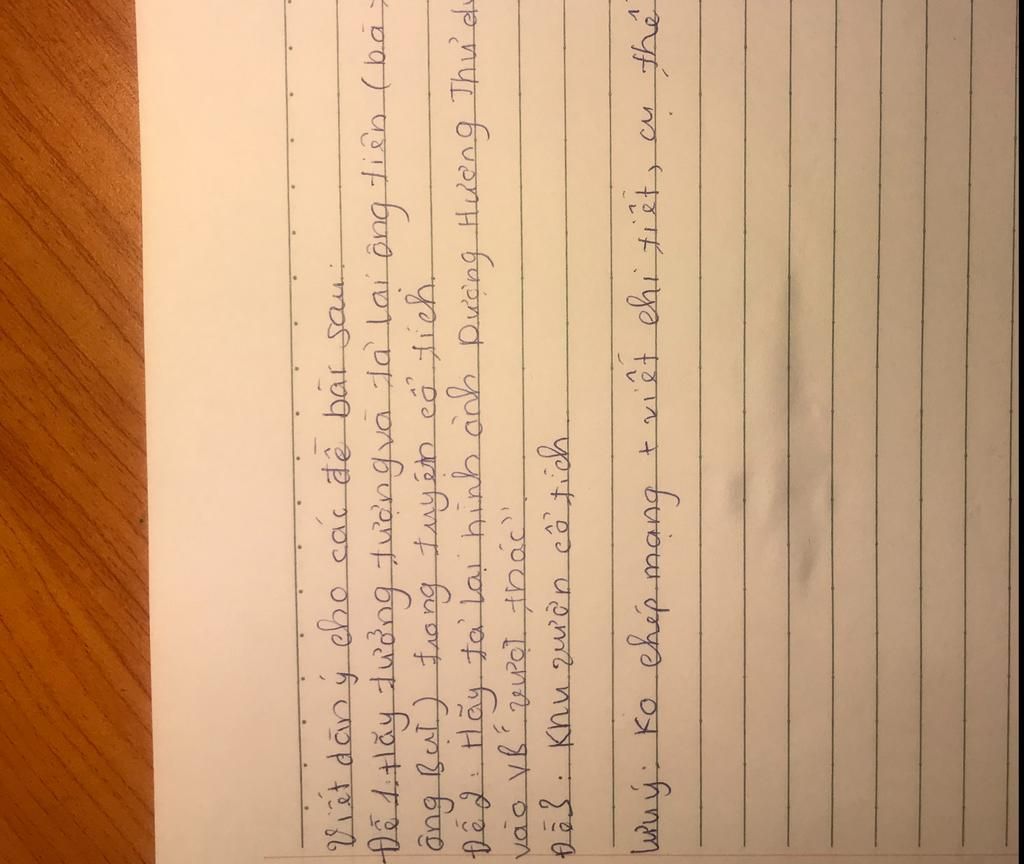 Viết dàn ý cho các đề bài sau:
Đề 1: Hãy tưởng tượng và tả lại ông tiên (bà
ông Bụt) trong truyện cổ tích
Đề 2: Hãy tả lại hình ảnh Dượng Hương Thư
vào VB "vượt thác"
Đề 3: Khu vườn cổ tích
Lưu ý: Ko chép mạng + viết chi tiết, cụ thể